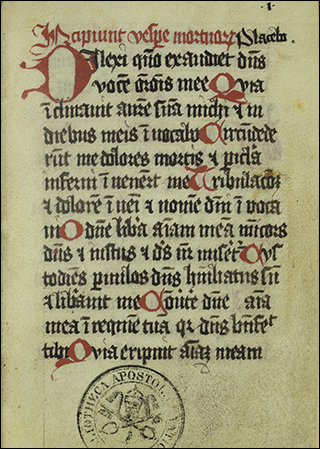 .1.
Incipiunt vesp̄e mortuoꝝ Placebo.
Dilexi qm̄o exaudiet dn̄s
vocē or̄ois mee Quia
īclinauit aurē suā michi ⁊ in
diebus meis īuocabo Circūdede
rūt me dolores mortis ⁊ picl̄a
inferni īuener̄t me Tribulacōꝫ
⁊ dolorē īuēi ⁊ nomē dn̄i īuoca
ui O dn̄e libā aīam meā miīcors
dn̄s ⁊ iustus ⁊ ds̄ nr̄ miseret̄ Cus
todiēs p̄uulos dn̄s hūiliatus sū
⁊ libauit me Cōūte dn̄e aīa
mea ī requiē tuā qr dn̄s bn̄fec̄
tibi Quia eripuit aīaꝫ meam
BIBLIOTHECA APOSTOL